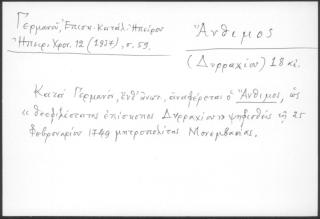 Γερμανοῦ, Ἐπισκ. Κατάλ. Ἠπείρου
Ἠπειρ. Χρον. 12 (1937), σ. 59.
Ἄνθιμος
(Δυρραχίου) 18 αἰ.
Κατά Γερμανόν, ἔνθ' ἀνωτ., ἀναφέρεται ὁ Ἄνθιμος, ὡς
« θεοφιλέστατος ἐπίσκοπος Δυρραχίου» ψηφισθείς τῇ 25
Φεβρουαρίου 1749 μητροπολίτης Μονεμβασίας.